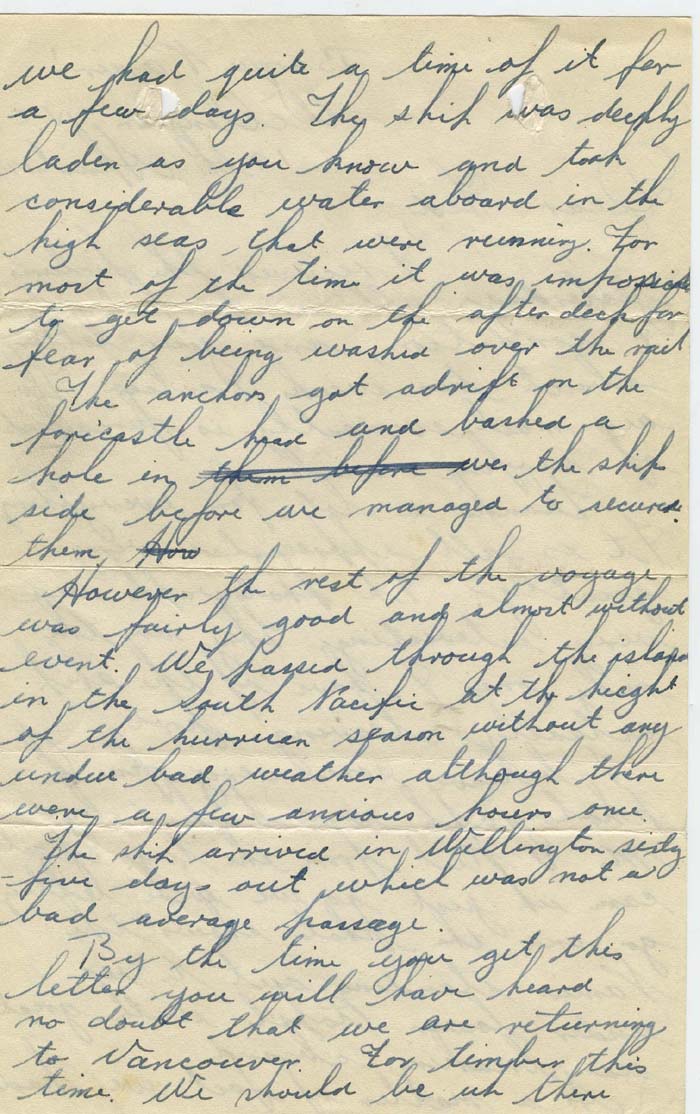 we had quite a time of it for
a few days. The ship was deeply
laden as you know and took
considerable water aboard in the
high seas that were running. For
most of the time it was impossible
to get down on the after deck for
fear of being washed over the rail
The anchors got adrift on the
foricastle head and bashed a
hole in them before we the ship
side before we managed to secure
them. How
However the rest of the voyage
was fairly good and almost without
event. We passed through the islands
in the South Pacific at the height
of the hurrican season without any
undue bad weather although there
were a few anxious hours once.
The ship arrived in Wellington sixty
-five days out which was not a
bad average passage.
By the time you get this
letter you will have heard
no doubt that we are returning
to Vancouver. For timber this
time. We should be up there